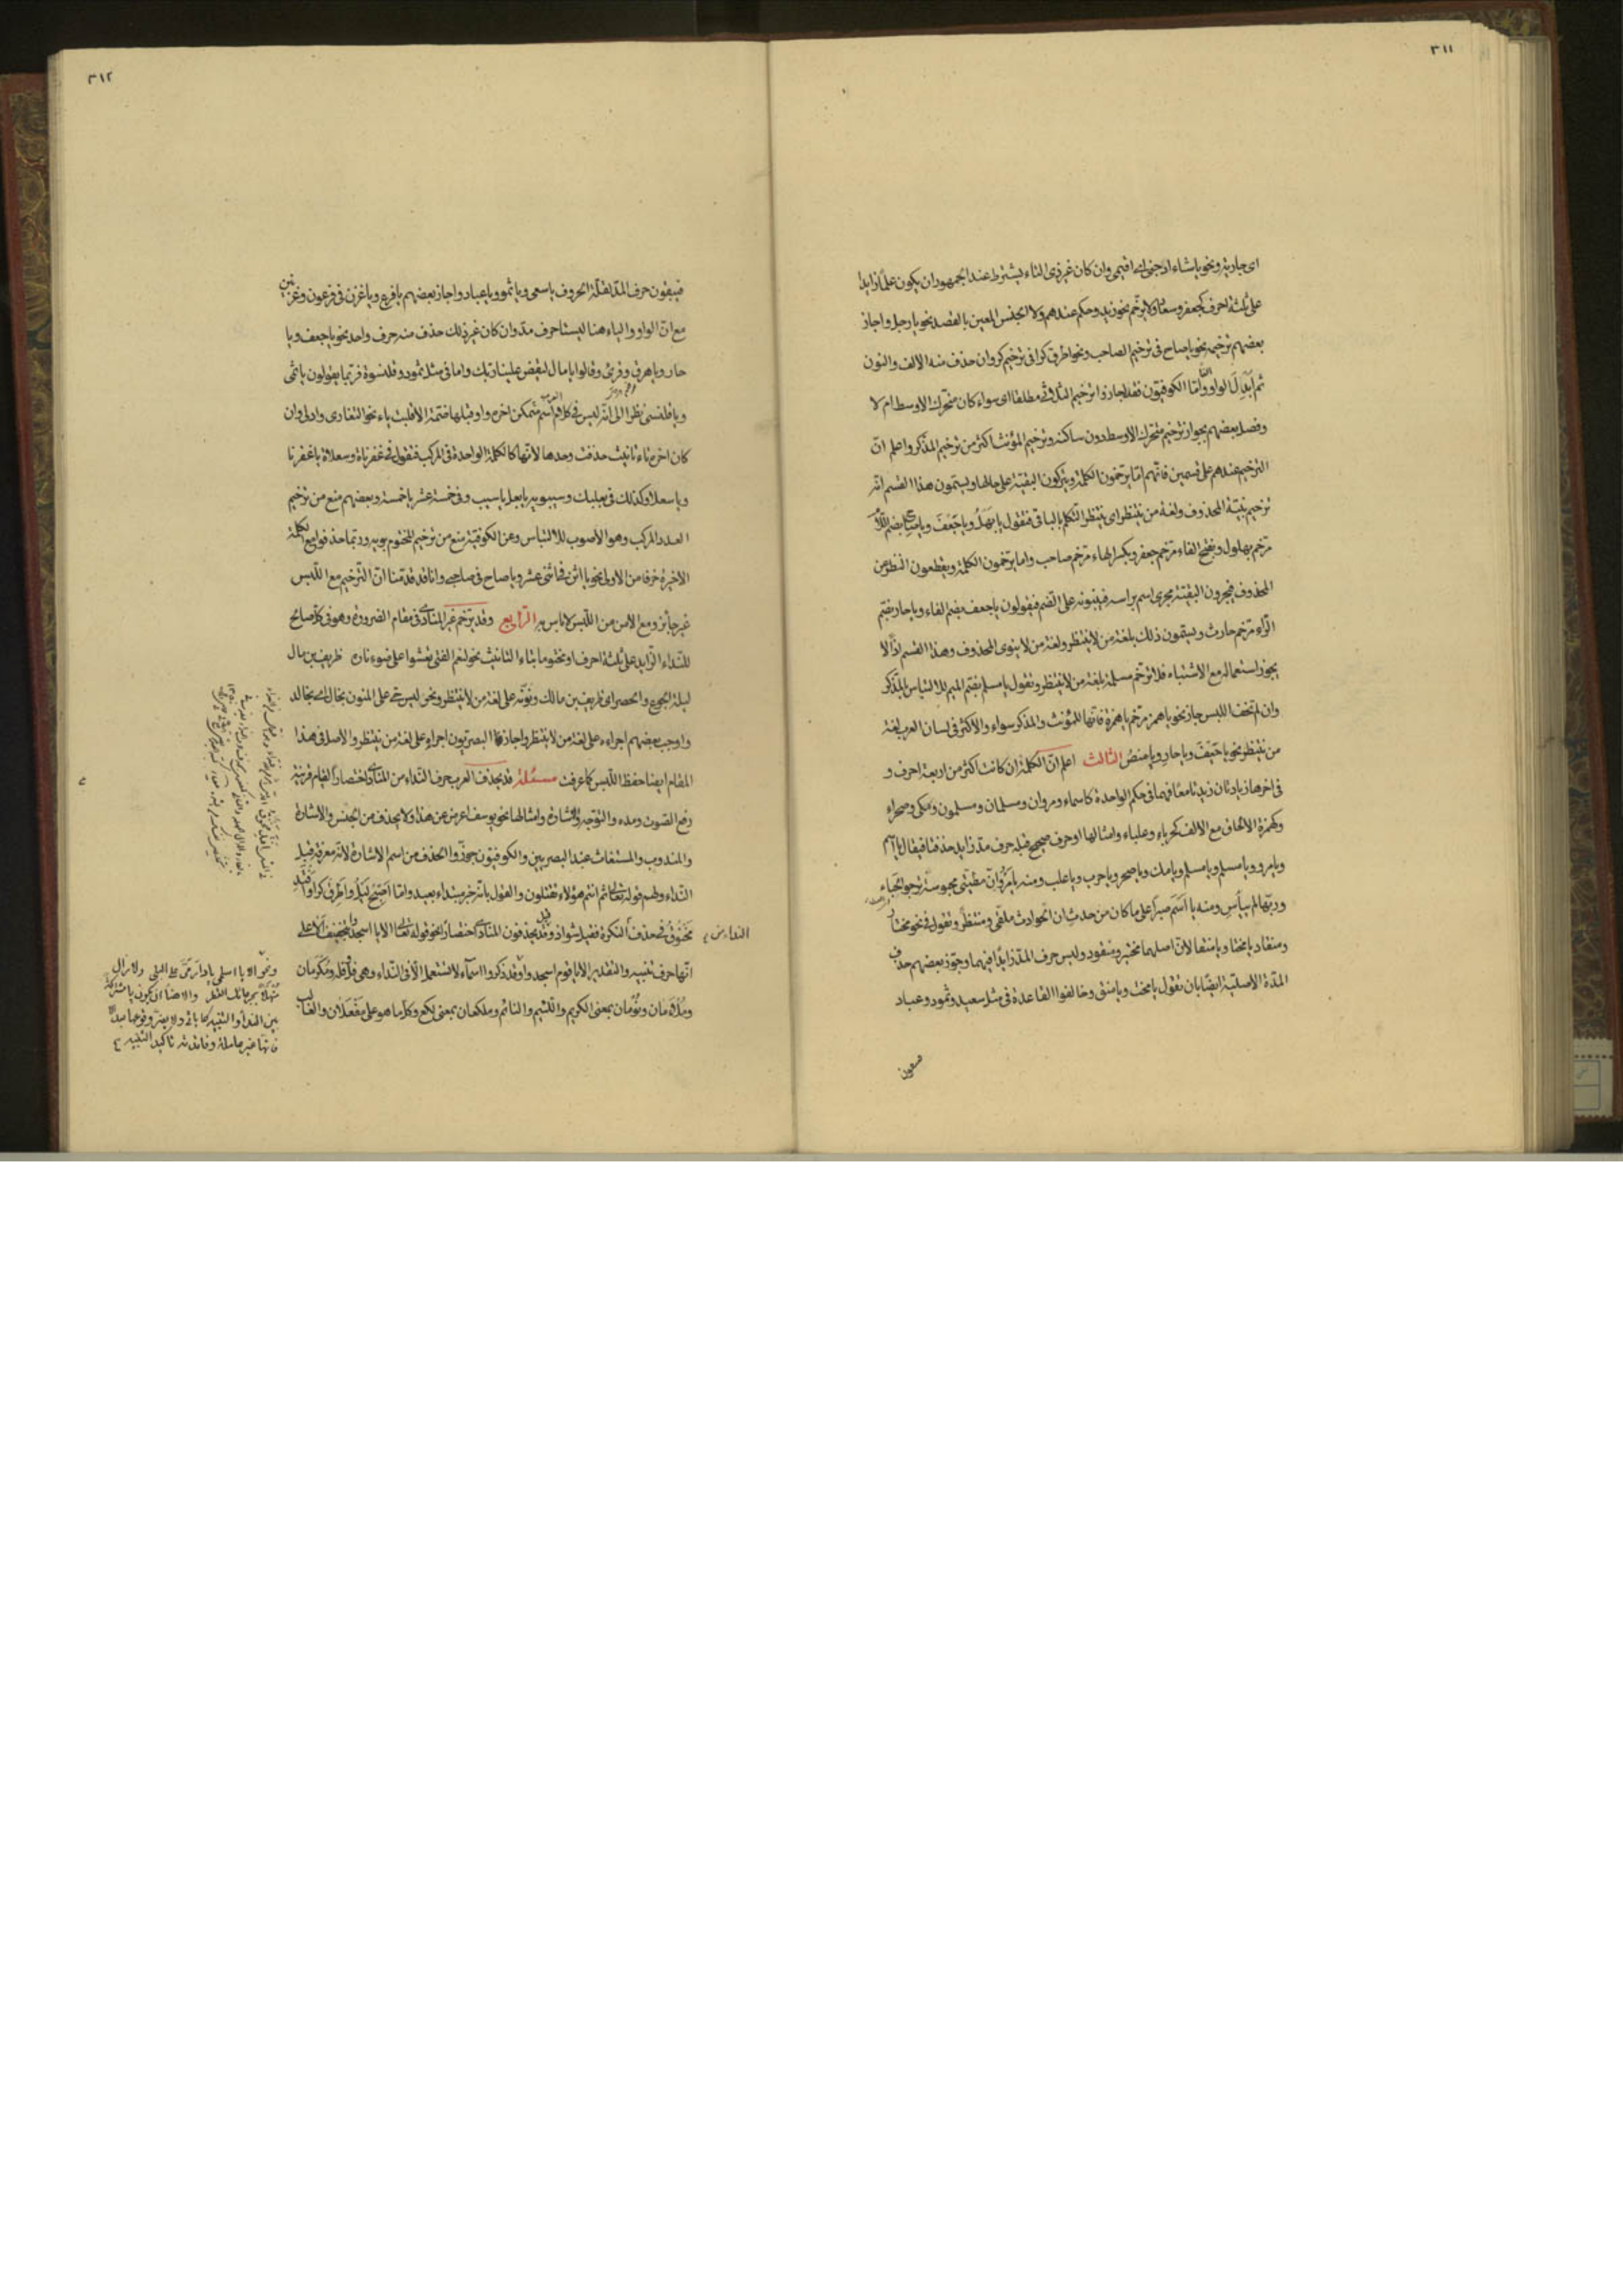 ٣١١
اى جارية ونحو يا شاء ادجنى اى اقيمى وان كان غير ذى التاء يشترط عند الجمهور ان يكون علما زايدا
على ثلثة احرف كجعفر وسعاد ولا يرخم نحو زيد وحكم عندهم ولا الجنس المعين بالقصد نحو يا رجل واجاز
بعضهم ترخيمه نحو يا صاح فى ترخيم الصاحب ونحو اطرق كرا فى ترخيم كروان حذف منه الالف والنون
ثم ابدل الواو الفا واما الكوفيون فقد اجازوا ترخيم الثلاثى مطلقا اى سواء كان متحرك الاوسط ام لا
وفصل بعضهم بجواز ترخيم متحرك الاوسط دون ساكنه وترخيم المؤنث اكثر من ترخيم المذكر واعلم ان
الترخيم عندهم على قسمين فانهم اما يرخمون الكلمة ويتركون البقية على حالها ويسمون هذا القسم انه
ترخيم بنية المحذوف ولغة من ينتظر اى ينتظر التكلم بالباقى فتقول يا بهل ويا جعف ويا صاح بضم اللام
مرخم بهلول وبفتح الفاء مرخم جعفر وبكسر الهاء مرخم صاحب واما يرخمون الكلمة ويقطعون النظر عن
المحذوف فيجرون البقية مجرى اسم براسه فيبنونه على الضم فيقولون يا جعف بضم الفاء ويا حار بضم
الراء مرخم حارث ويسمون ذلك بلغة من لا ينتظر ولغة من لا ينوى المحذوف وهذا القسم لا
يجوز استعماله مع الاشتباه فلا ترخم مسلمة بلغة من لا ينتظر وتقول يا مسلم بفتح الميم للالتباس بالمذكر
وان لم تخف اللبس جاز نحو يا همز مرخم يا همزة فانها للمؤنث والمذكر سواء والاكثر فى لسان العرب لغة
من ينتظر نحو يا جعف ويا حار ويا منص الثالث اعلم ان الكلمة ان كانت اكثر من اربعة احرف و
فى اخرها زيادتان زيدتا معا فهما فى حكم الواحدة كاسماء ومروان ومسلمان ومسلمون ومكى وصحراء
وكهمزة الالحاق مع الالف كحرباء وعلباء وامثالها او حرف صحيح قبله حرف مد زايد حذفتا فيقال يا اسم
ويا مرو ويا مسلم ويا مسلم ويا مك ويا صحر ويا حرب ويا علب ومنه يا مرو ان مطيتى محبوسة ترجو الحباء
وربها لم ييأس ومنه يا اسم صبرا على ما كان من حدث ان الحوادث ملقى ومنتظر وتقول فى نحو مختار
ومنقاد يا مختا ويا منقا لان اصلهما مختير ومنقود وليس حرف المد زايدا فيهما وجوز بعضهم حذف
المدة الاصلية ايضا بان تقول يا مخت ويا منق وخالفوا القاعدة فى مثل سعيد وثمود وعباد
٣١٢
فيبقون حرف المد لقلة الحروف يا سعى ويا ثمو ويا عبا واجاز بعضهم يا فرع ويا غرن فى فرعون وغرنيق
مع ان الواو والياء هنا ليستا حرف مد وان كان غير ذلك حذف منه حرف واحد نحو يا جعف ويا
حار ويا هرق وقرئ وقالوا يا مال ليقض علينا ربك واما فى مثل ثمود وقلنسوة فربما يقولون يا ثمى
ويا قلنسى نظرا الى انه ليس فى كلام اسم متمكن اخره واو قبلها ضمة الا قلبت ياء نحو التغازى وادلى وان
كان اخره تاء تانيث حذفت وحدها لانها كالكلمة الواحدة فى المركب فتقول فى عفرناة وسعلاة يا عفرنا
ويا سعلا وكذلك فى بعلبك وسيبويه يا بعل يا سيب وفى خمسة عشر يا خمسة وبعضهم منع من ترخيم
العدد المركب وهو الاصوب للالتباس وعن الكوفية منع من ترخيم المختوم بويه وربما حذفوا مع الكلمة
الاخيرة حرفا من الاولى نحو يا اثن فى اثنى عشر ويا صاح فى صاحبى وانا قد قدمنا ان الترخيم مع اللبس
غير جائز ومع الامن من اللبس لا باس به الرابع وقد يرخم غير المنادى فى مقام الضرورة وهو فى كل صالح
للنداء الزايد على ثلثة احرف او مختوما بتاء التانيث نحو لنعم الفتى تعشوا على ضوء ناره طريف بن مال
ليلة الجوع والحصر اى طريف بن مالك ونونه على لغة من لا ينتظر ونحو ليس حى على المنون بخال اى بخالد
واوجب بعضهم اجراءه على لغة من لا ينتظر واجاز البصريون اجراءه على لغة من ينتظر والاصل فى هذا
المقام ايضا حفظ اللبس كما عرفت مسئلة قد يحذف العرب حرف النداء من المنادى اختصارا لقيام قرينة
رفع الصوت ومده والتوجه والاشارة وامثالها نحو يوسف اعرض عن هذا ولا يحذف من الجنس والاشارة
والمندوب والمستغاث عند البصريين والكوفيون جوزوا الحذف من اسم الاشارة لانه معرفة قبل
النداء ولهم قوله تعالى ثم انتم هؤلاء تقتلون والقول بانه خبر مبتداء بعيد واما اصبح ليل واطرق كرا وافتد
مخنوق فى حذف النكرة فقيل شواذ وقد يحذفون المنادى اختصارا نحو قوله تعالى الا يا اسجدوا بتخفيف الا على
النداء من
انها حرف تنبيه والتقدير الا يا قوم اسجدوا وقد ذكروا اسماء لا تستعمل الا فى النداء وهى فل وفلة ومكرمان
وملأمان ونومان بمعنى الكريم واللئيم والنائم وملكعان بمعنى لكع وكل ما هو على مفعلان والغالب
ونحو الا يا اسلمى يا دار مى على البلى ولا زال
منهلا بجرعائك القطر
بين النداء والتنبيه